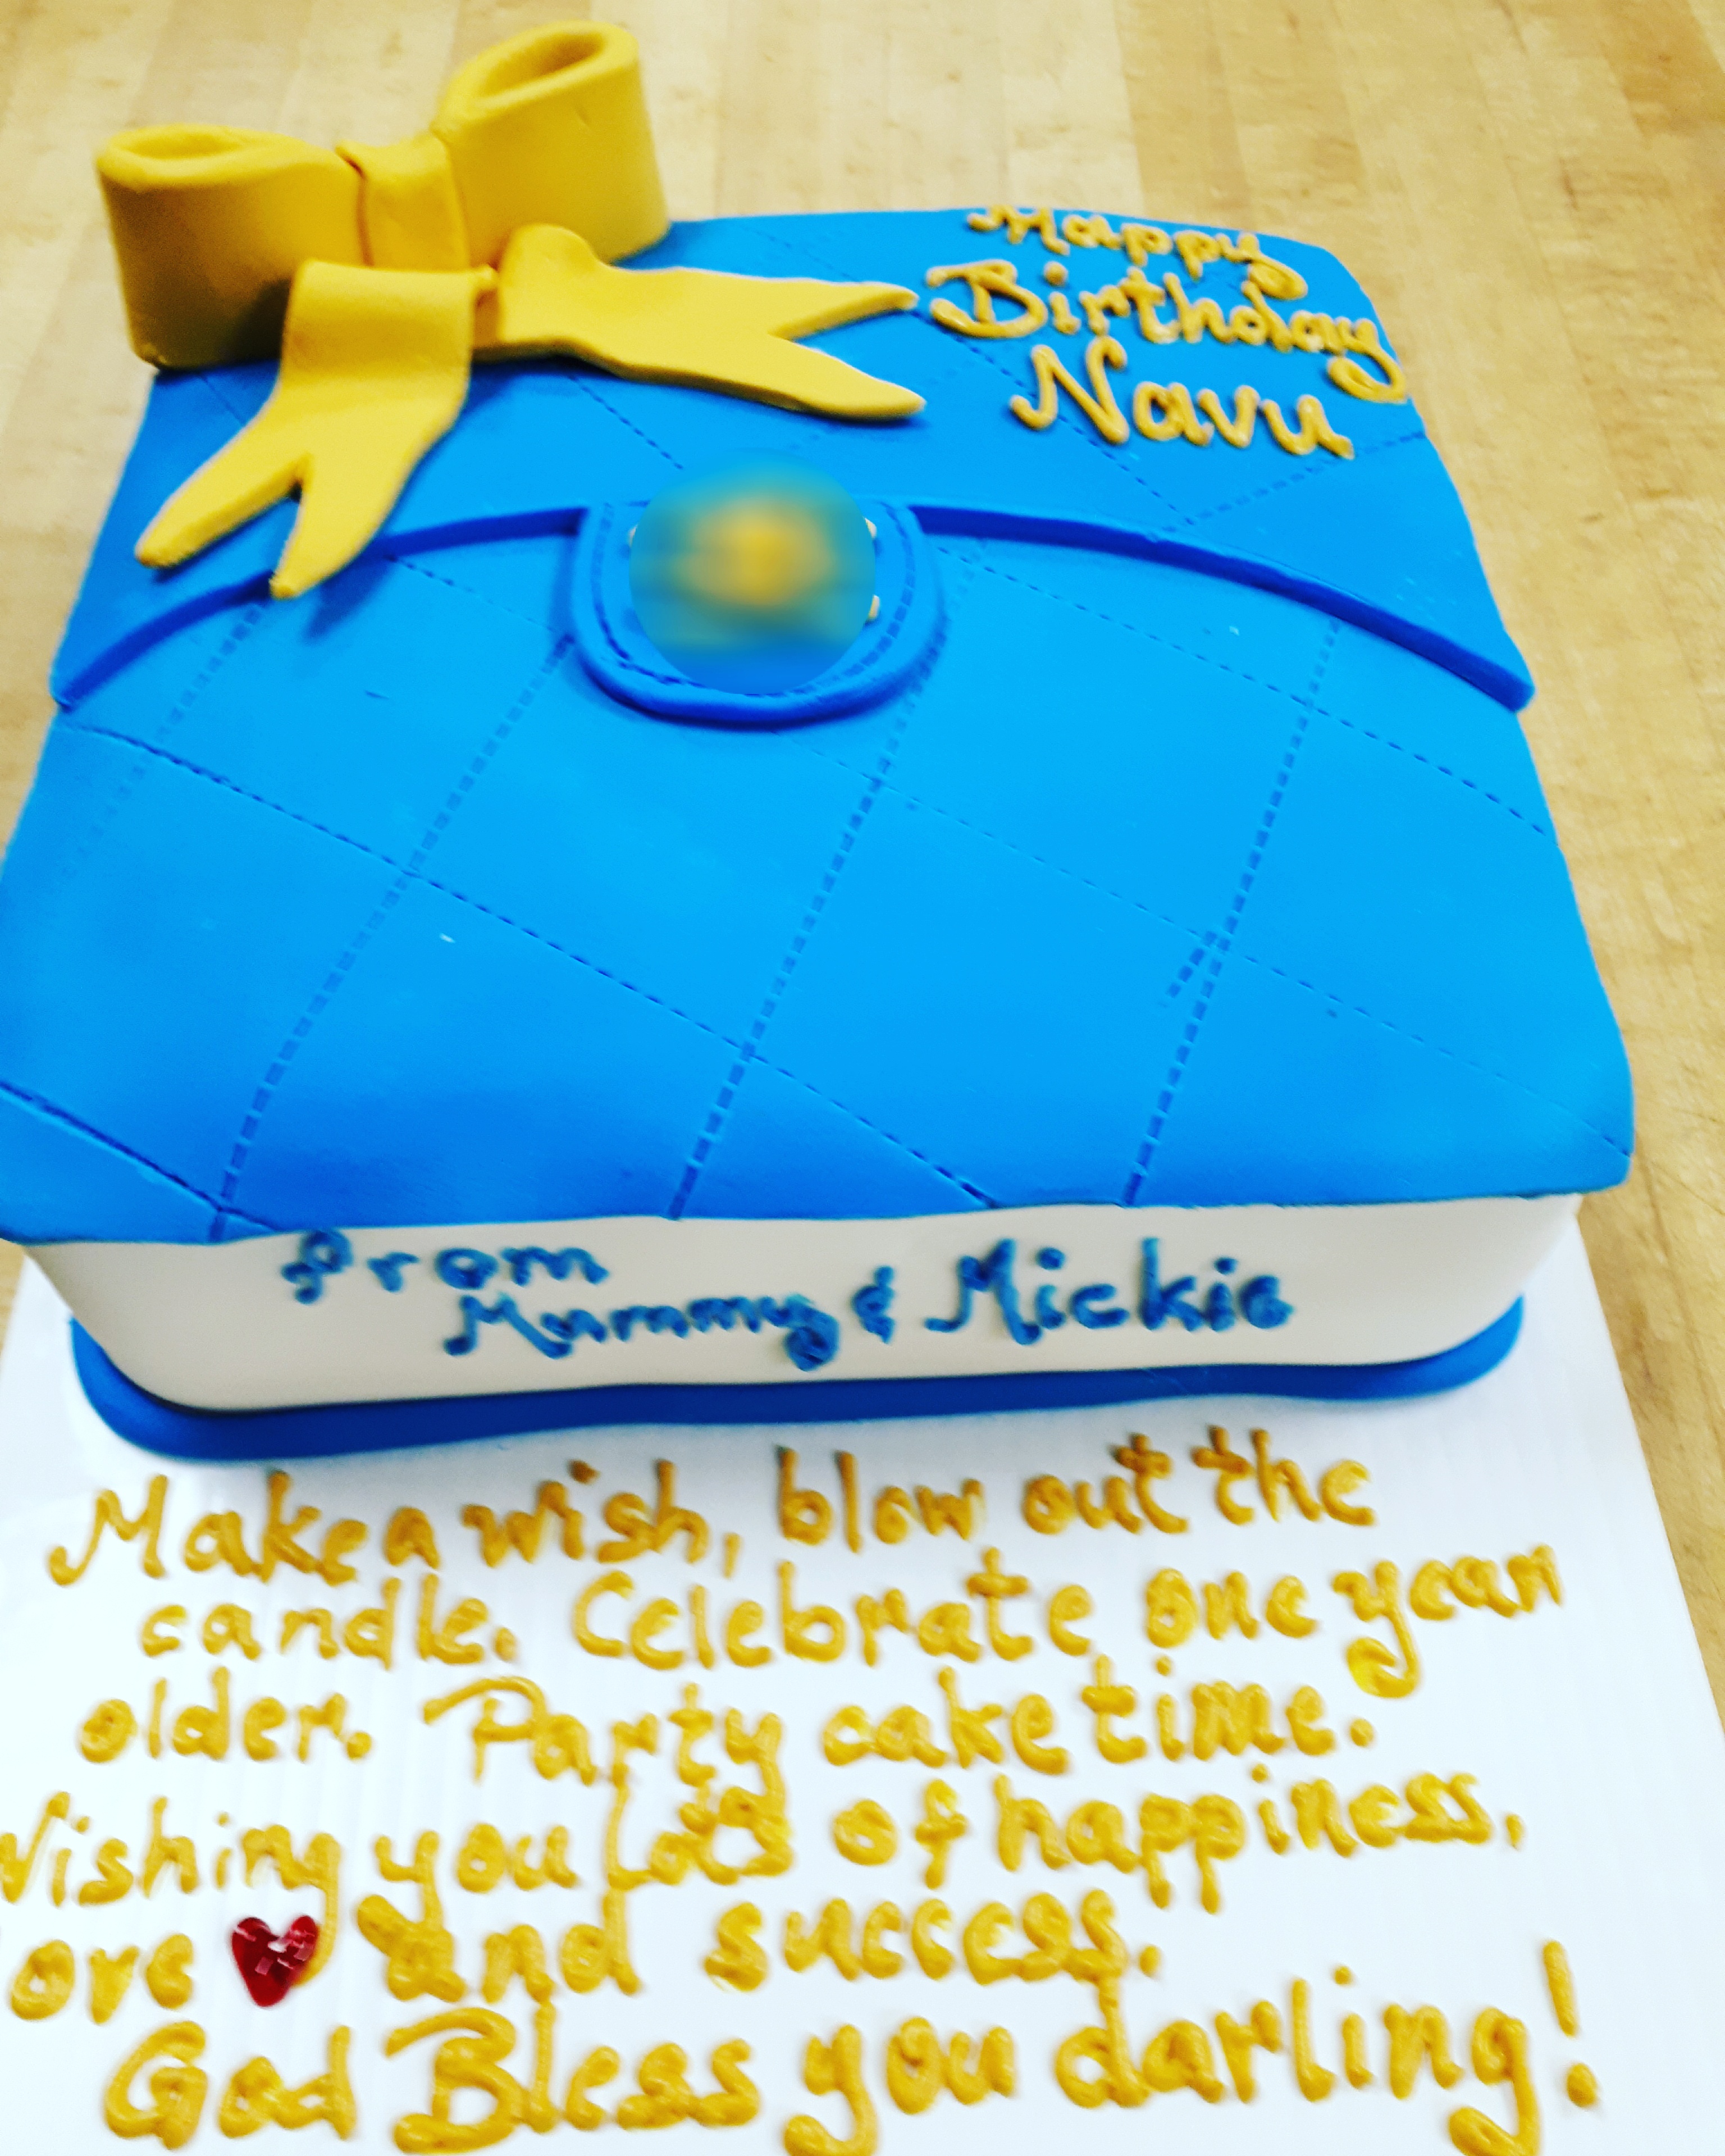 Happy
Birthday
Navu
From
Mummy & Mickie
Make a wish, blow out the
candle. Celebrate one year
older. Party cake time.
Wishing you Lots of happiness,
Love and success.
God Bless you darling!